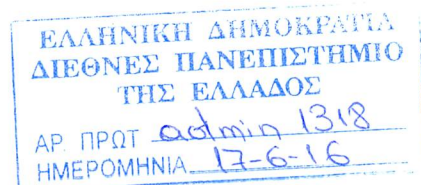 ΕΛΛΗΝΙΚΗ ΔΗΜΟΚΡΑΤΙΑ
ΔΙΕΘΝΕΣ ΠΑΝΕΠΙΣΤΗΜΙΟ
ΤΗΣ ΕΛΛΑΔΟΣ
ΑΡ. ΠΡΩΤ admin 1318
ΗΜΕΡΟΜΗΝΙΑ 17-6-16